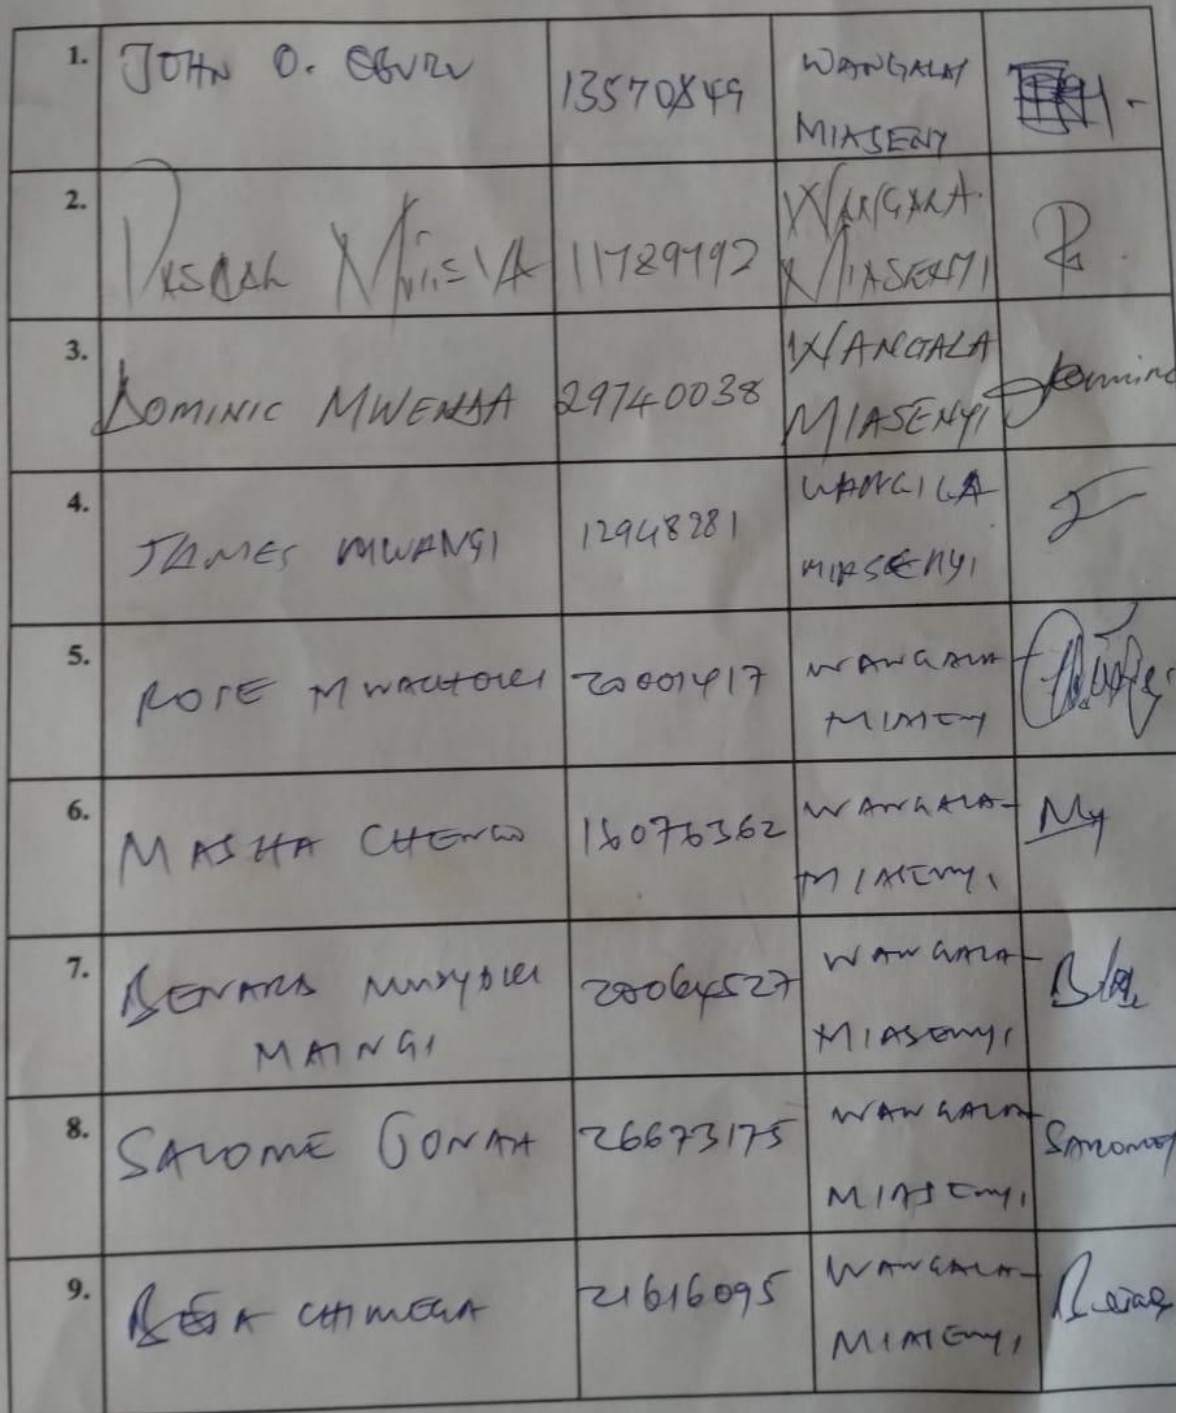 1. JOHN O. OBURU 13570849 WANGALA/
MIASENY
2. PASCAL 11789792 WANGALA
MIASENYI
3. DOMINIC MWENDA 29740038 WANGALA Dominic
MIASENYI
4. JAMES MWANGI 12948281 WANGILA
MIASENYI
5. ROSE 20001417 WANGALA
MIASENY
6. MASHA CHENGO 16076362 WANGALA-
MIASENYI
7. BENARD 20064527 WANGALA-
MAINGI MIASENYI
8. SALOME GONAH 26673175 WANGALA
MIASENYI SALOME
9. CHIMEGA 21616095 WANGALA-
MIASENYI